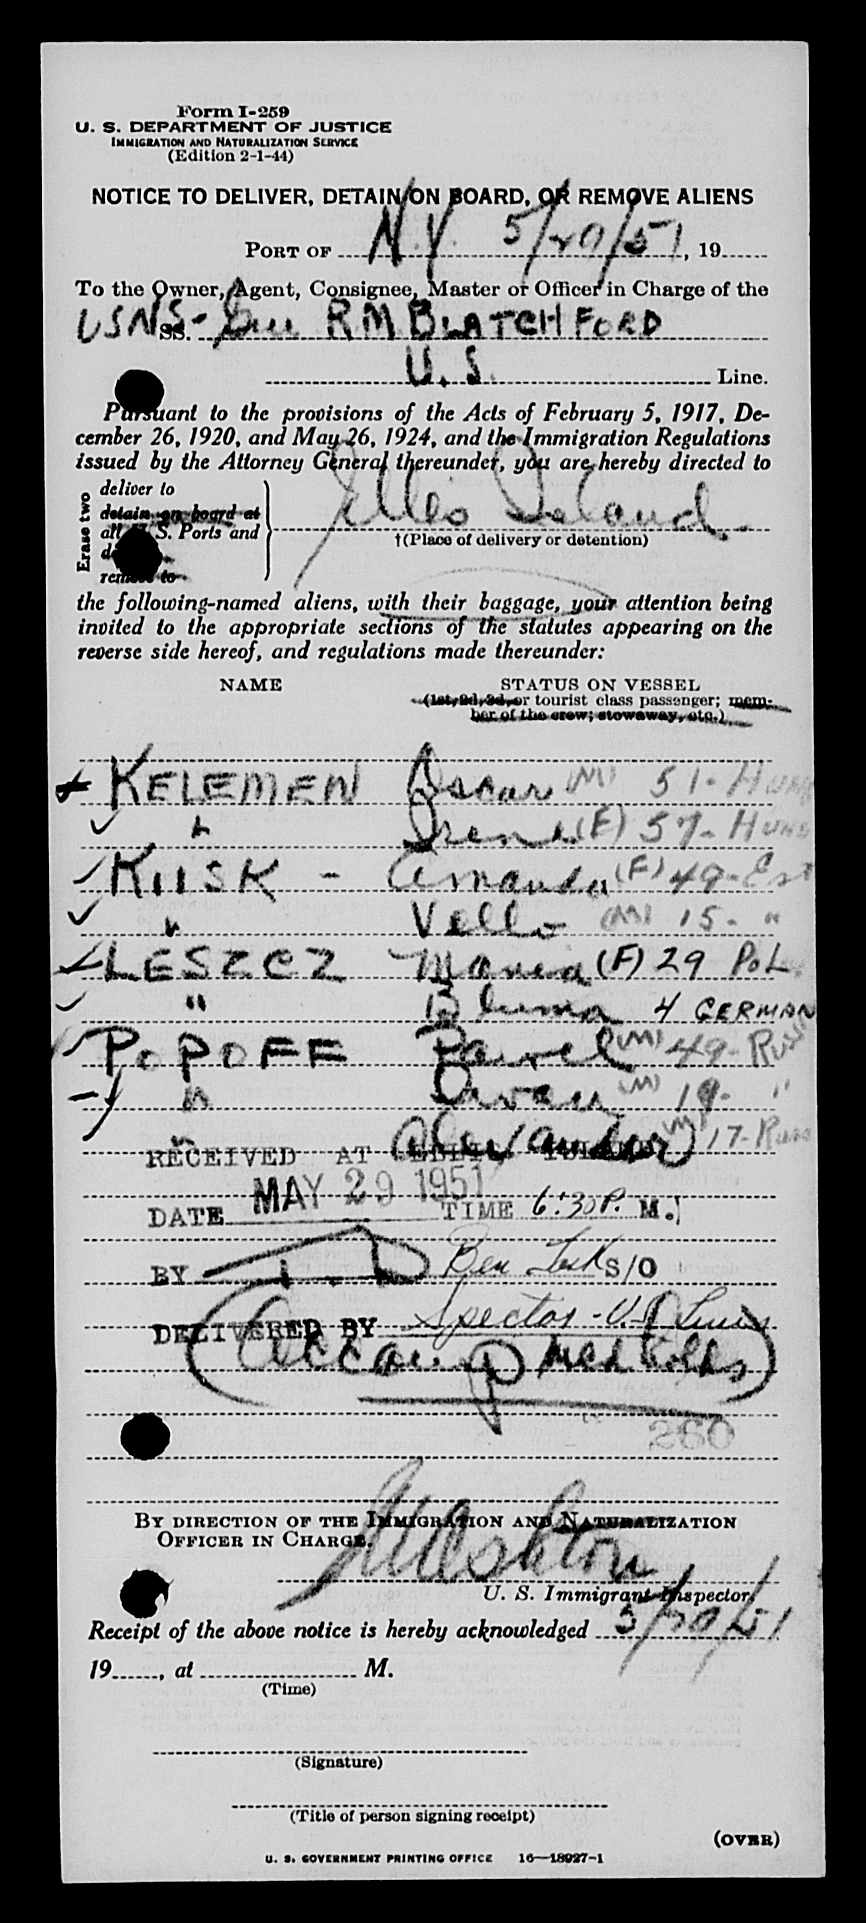 Form I-259
U. S. DEPARTMENT OF JUSTICE
IMMIGRATION AND NATURALIZATION SERVICE
(Edition 2-1-44)
NOTICE TO DELIVER, DETAIN ON BOARD, OR REMOVE ALIENS
PORT OF N.Y. 5/29/51, 19
To the Owner, Agent, Consignee, Master or Officer in Charge of the
USNS- SS. Gen R M BLATCHFORD
U.S. Line.
Pursuant to the provisions of the Acts of February 5, 1917, De-
cember 26, 1920, and May 26, 1924, and the Immigration Regulations
issued by the Attorney General thereunder, you are hereby directed to
Erase two
deliver to
detain on board at
all U. S. Ports and
remove to
Ellis Island
†(Place of delivery or detention)
the following-named aliens, with their baggage, your attention being
invited to the appropriate sections of the statutes appearing on the
reverse side hereof, and regulations made thereunder:
NAME STATUS ON VESSEL
(1st, 2d, 3d, or tourist class passenger; mem-
ber of the crew; stowaway, etc.)
KELEMEN Oscar (M) 51- Hung
" Irene (F) 57- Hung
KIISK - Amanda (F) 49- Est
" Vello (M) 15- "
LESZCZ Maria (F) 29 POL
" Bluma 4 GERMAN
POPOFF Pavel (M) 49- Russ
" Ivan (M) 19- "
" Alexander (M) 17- Russ
RECEIVED AT ELLIS ISLAND
DATE MAY 29 1951 TIME 6:30 P. M.
BY Ben S/O
DELIVERED BY Spector - U.S. Lines
Accom'g Med Holds
260
BY DIRECTION OF THE IMMIGRATION AND NATURALIZATION
OFFICER IN CHARGE.
Ashton
U. S. Immigrant Inspector.
Receipt of the above notice is hereby acknowledged 5/29/51
19 , at M.
(Time)
(Signature)
(Title of person signing receipt)
(OVER)
U. S. GOVERNMENT PRINTING OFFICE 16—18927-1